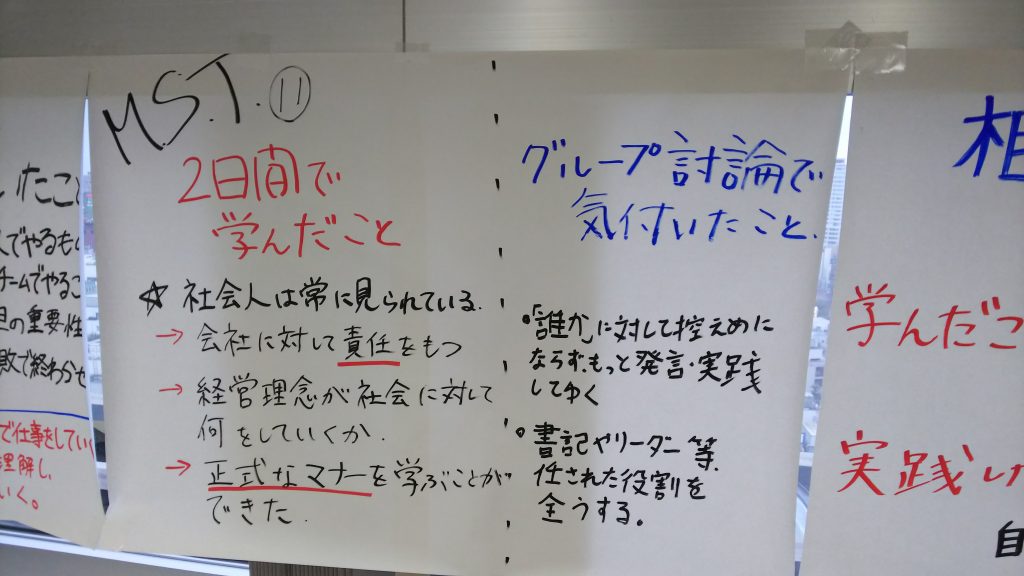 たこと
でやるもの
チームでやるこ
の重要性
敗で終わらせ
で仕事をしてい
理解し
いく。
M.S.T. ⑪
2日間で
学んだこと
☆ 社会人は常に見られている.
→ 会社に対して責任をもつ
→ 経営理念が社会に対して
何をしていくか.
→ 正式なマナーを学ぶことが
できた.
グループ討論で
気付いたこと.
・「誰か」に対して控えめに
ならず、もっと発言・実践
してゆく
・書記やリーダー等、
任された役割を
全うする。
相
学んだこ
実践し
自